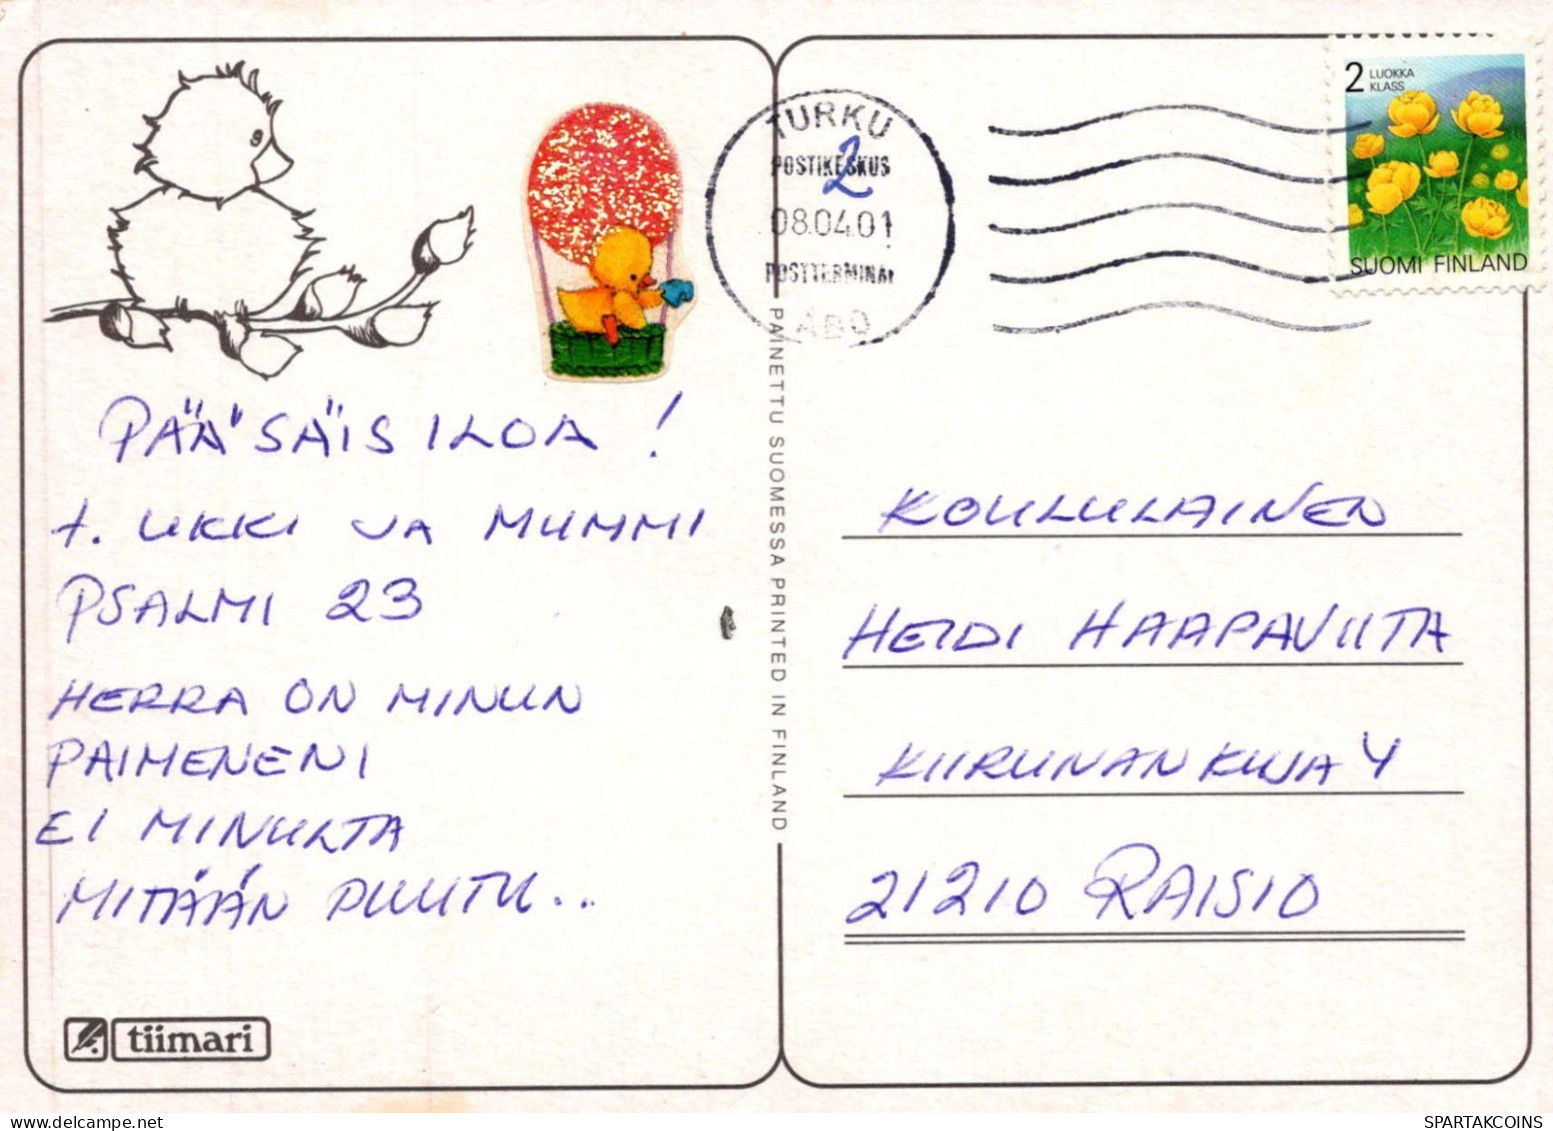 PÄÄSÄISILOA!
t. UKKI JA MUMMI
PSALMI 23
HERRA ON MINUN
PAIMENENI
EI MINULTA
MITÄÄN PUUTU...
tiimari
PAINETTU SUOMESSA PRINTED IN FINLAND
TURKU
POSTIKESKUS
2
08.04.01
POSTTERMINAL
ÅBO
2 LUOKKA
KLASS
SUOMI FINLAND
KOULULAINEN
HEIDI HAAPAVIITA
KIIRUNANKUJA 4
21210 RAISIO
SPARTAKCOINS